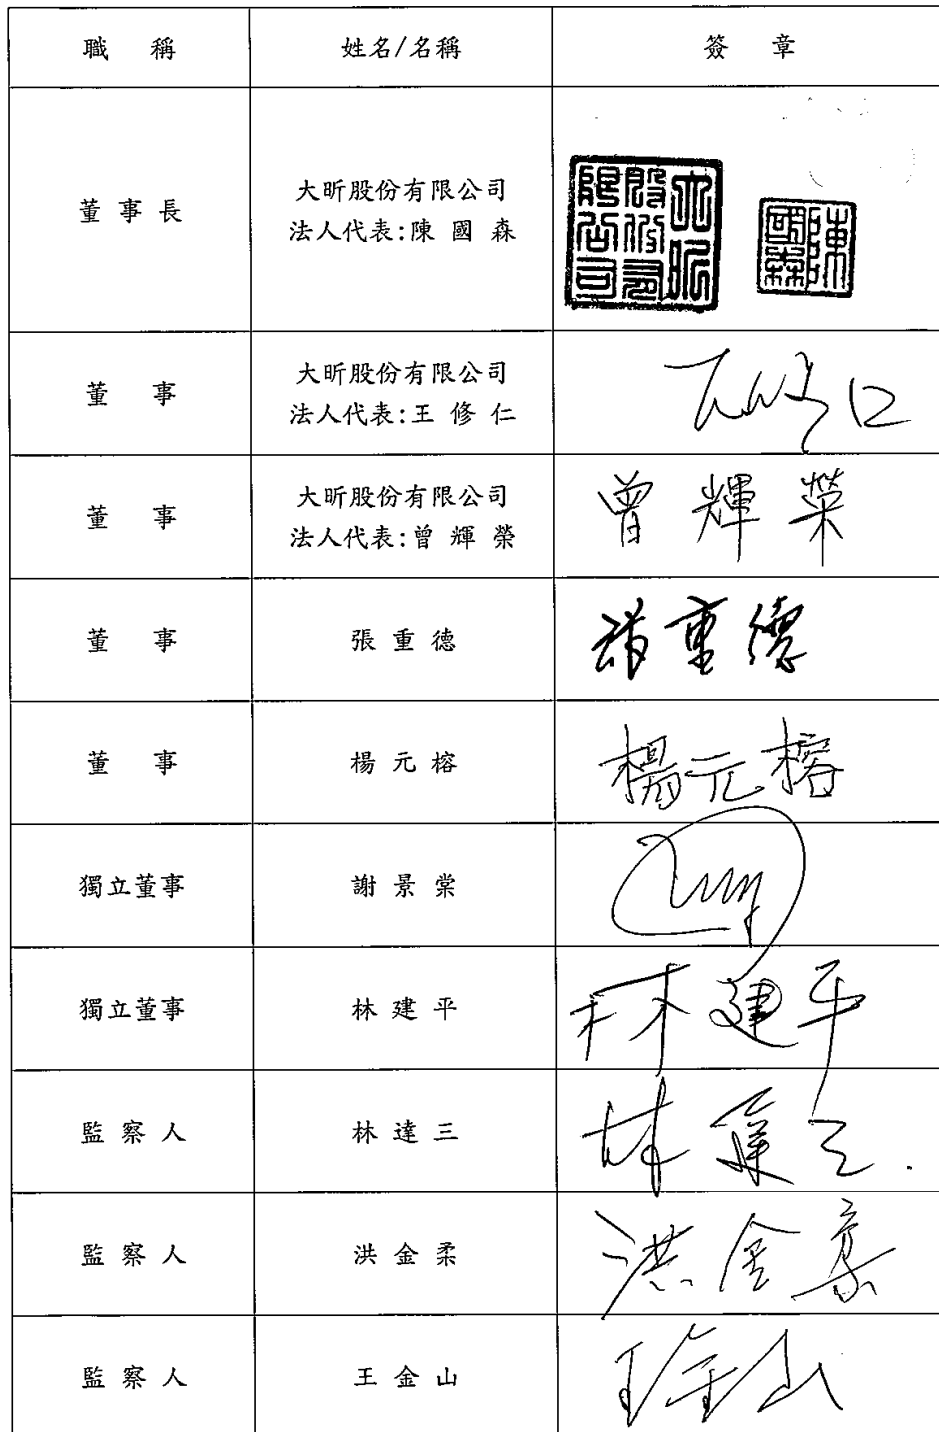 職 稱 姓名/名稱 簽 章
董 事 長 大昕股份有限公司
法人代表:陳 國 森
大昕股份有限公司
陳國森
董 事 大昕股份有限公司
法人代表:王 修 仁
董 事 大昕股份有限公司
法人代表:曾 輝 榮
曾輝榮
董 事 張 重 德 張重德
董 事 楊 元 榕 楊元榕
獨立董事 謝 景 棠
獨立董事 林 建 平 林建平
監 察 人 林 達 三 林達三
監 察 人 洪 金 柔 洪金柔
監 察 人 王 金 山 王金山